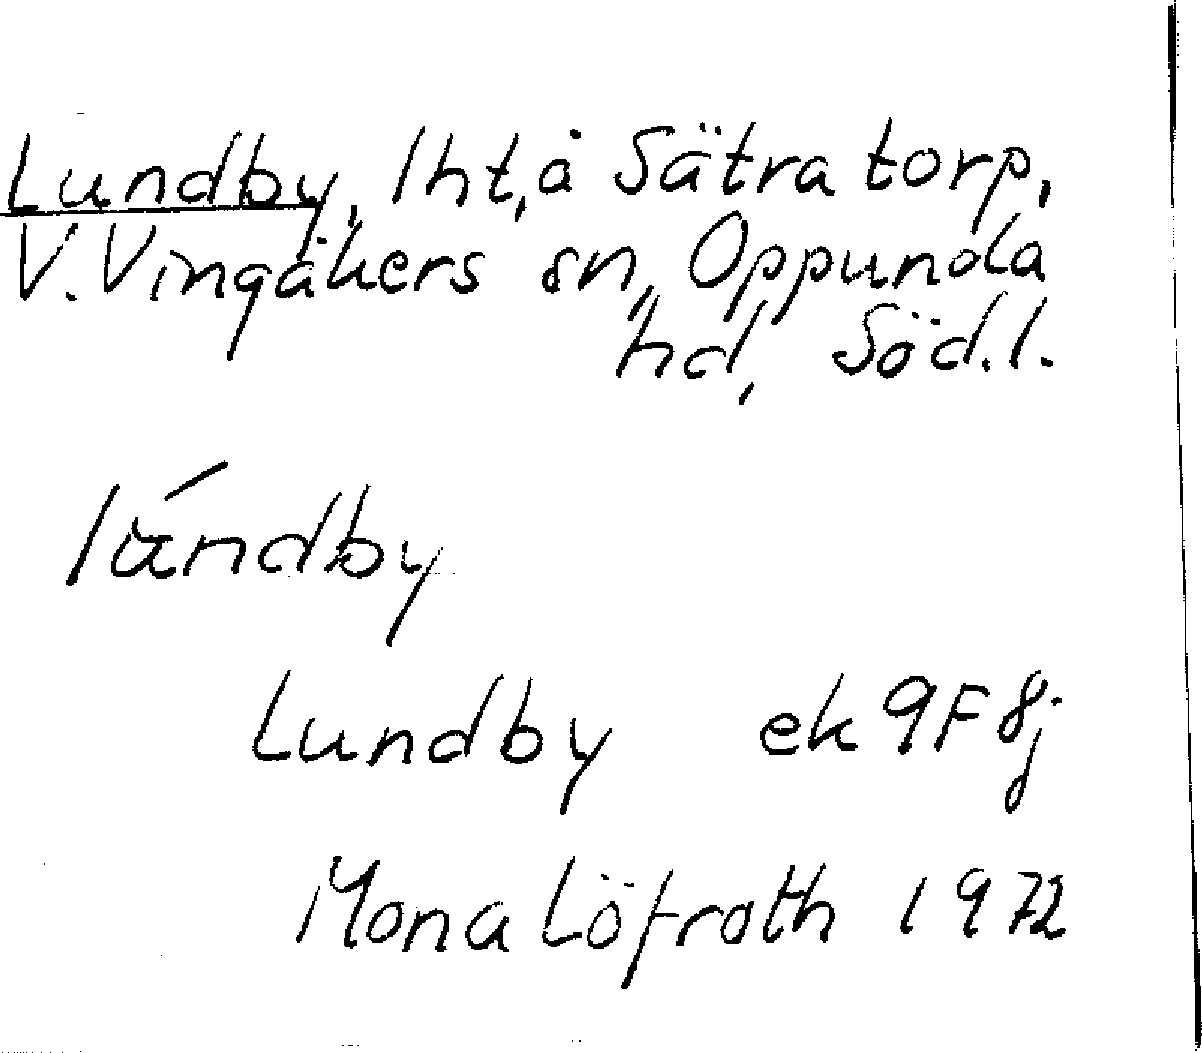 Lundby, lht, å Sätra torp,
V. Vingåkers sn, Oppunda
hd, Söd. l.
lúndby
Lundby ek 9F 8j
Mona Löfroth 1972